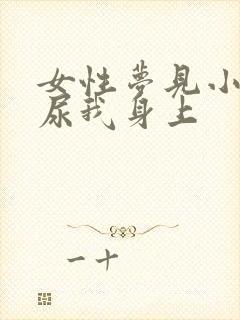 女性夢見小
尿我身上
一十